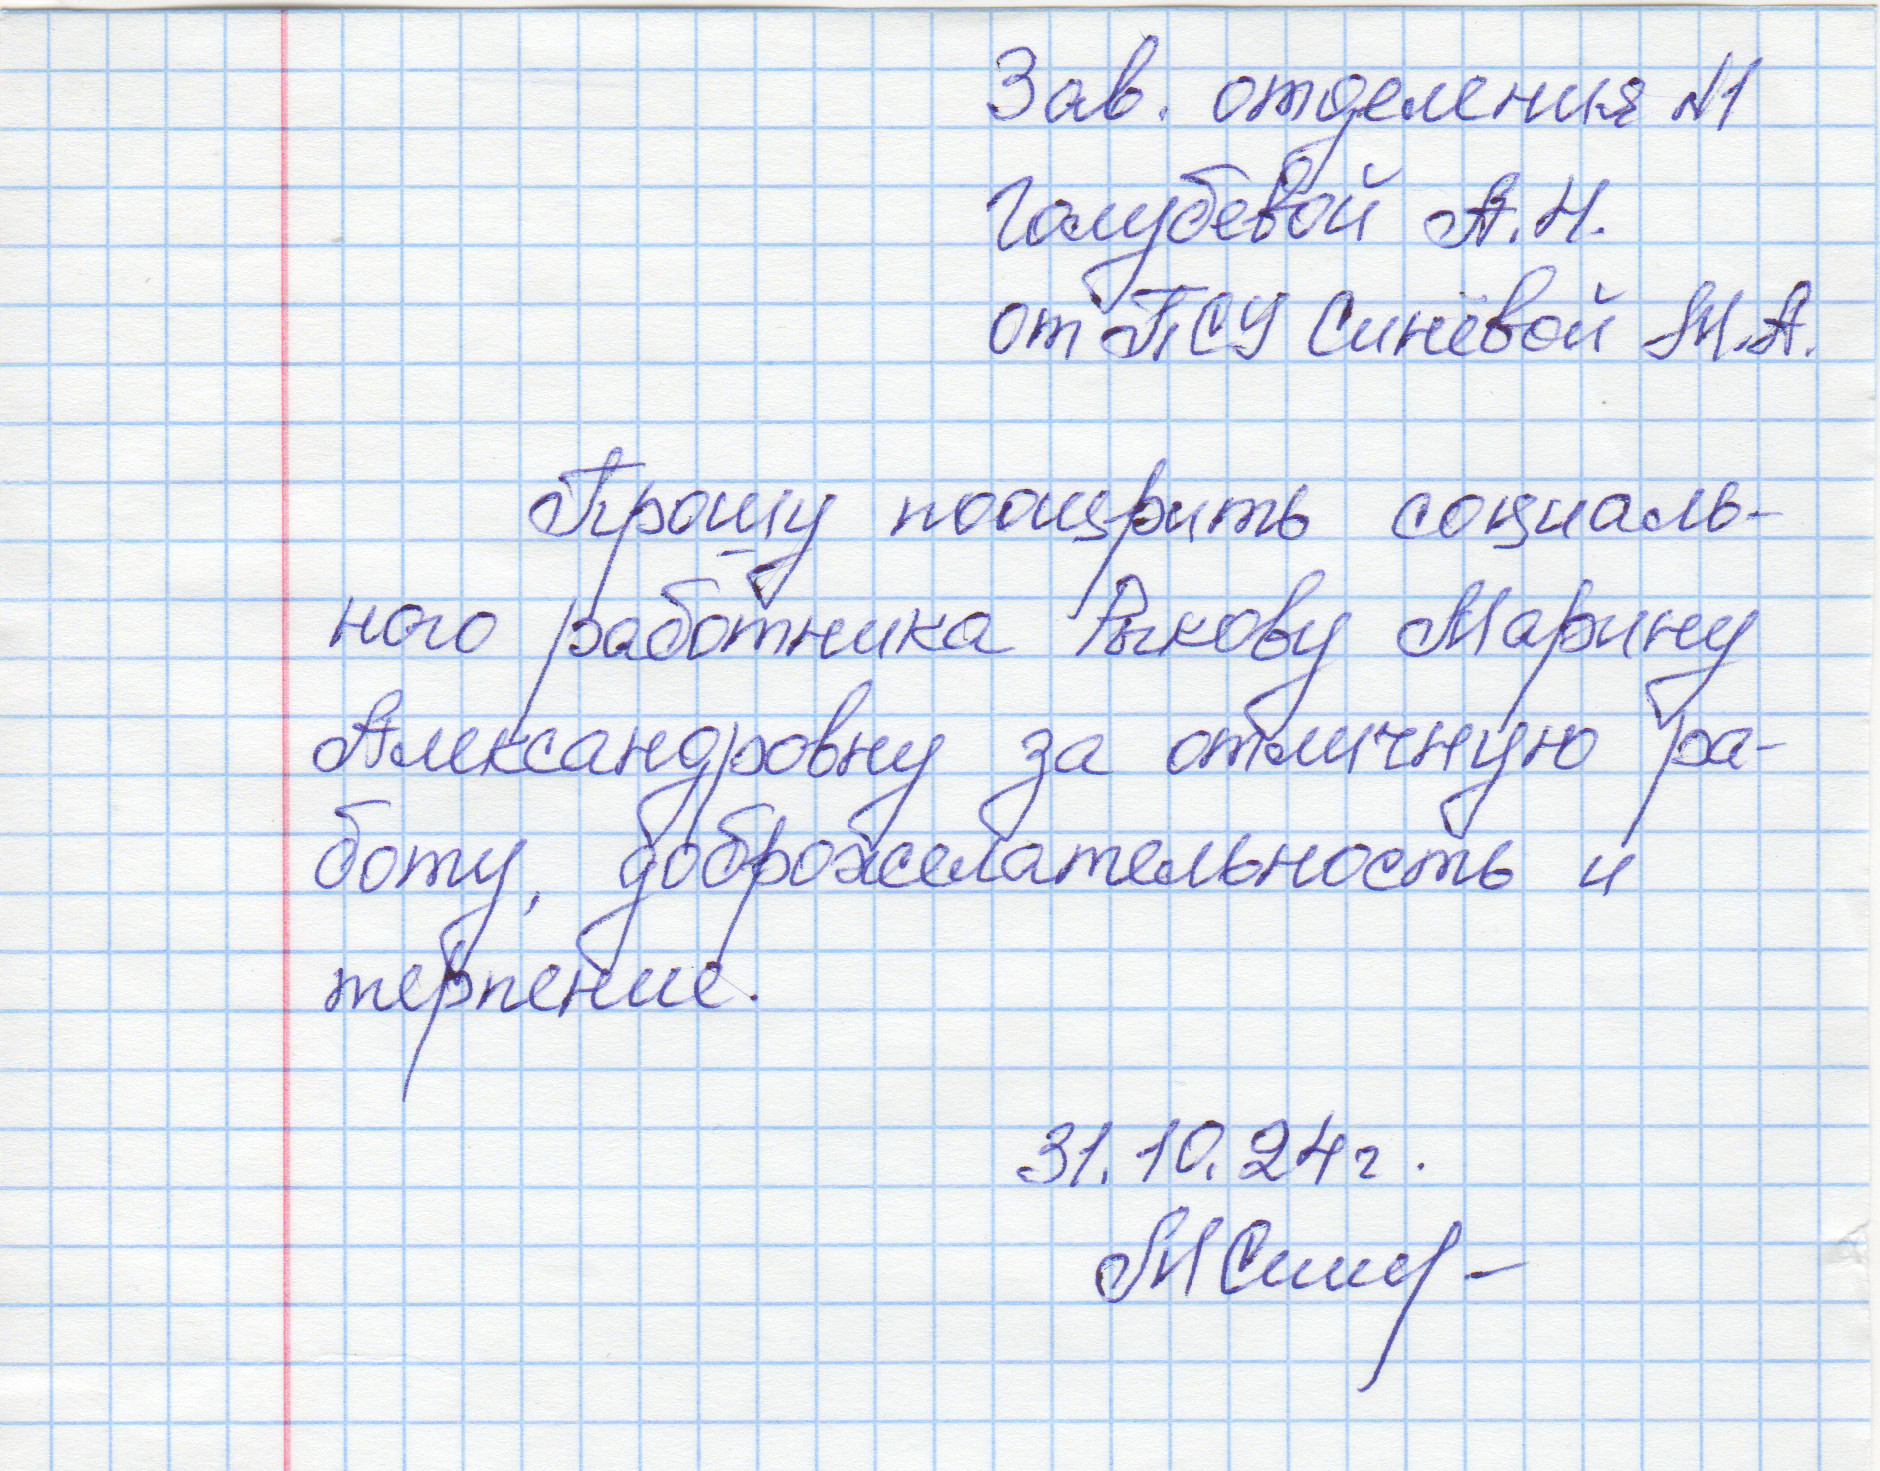 Зав. отделения №1
Голубевой А.Н.
от ПСУ Синёвой М.А.
Прошу поощрить социаль-
ного работника Рыкову Марину
Александровну за отличную ра-
боту, доброжелательность и
терпение.
31.10.24г.